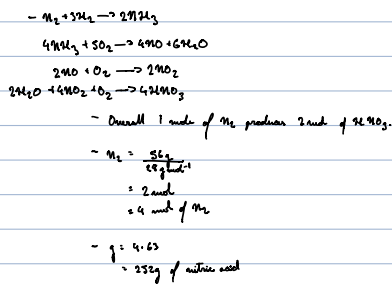 - N₂ + 3H₂ → 2NH₃
4NH₃ + 5O₂ → 4NO + 6H₂O
2NO + O₂ → 2NO₂
2H₂O + 4NO₂ + O₂ → 4HNO₃
- Overall 1 mole of N₂ produces 2 mol of HNO₃.
- N₂ = 56g / 28gmol⁻¹
= 2 mol
= 4 mol of N₂
- g = 4.63
= 252g of nitric acid